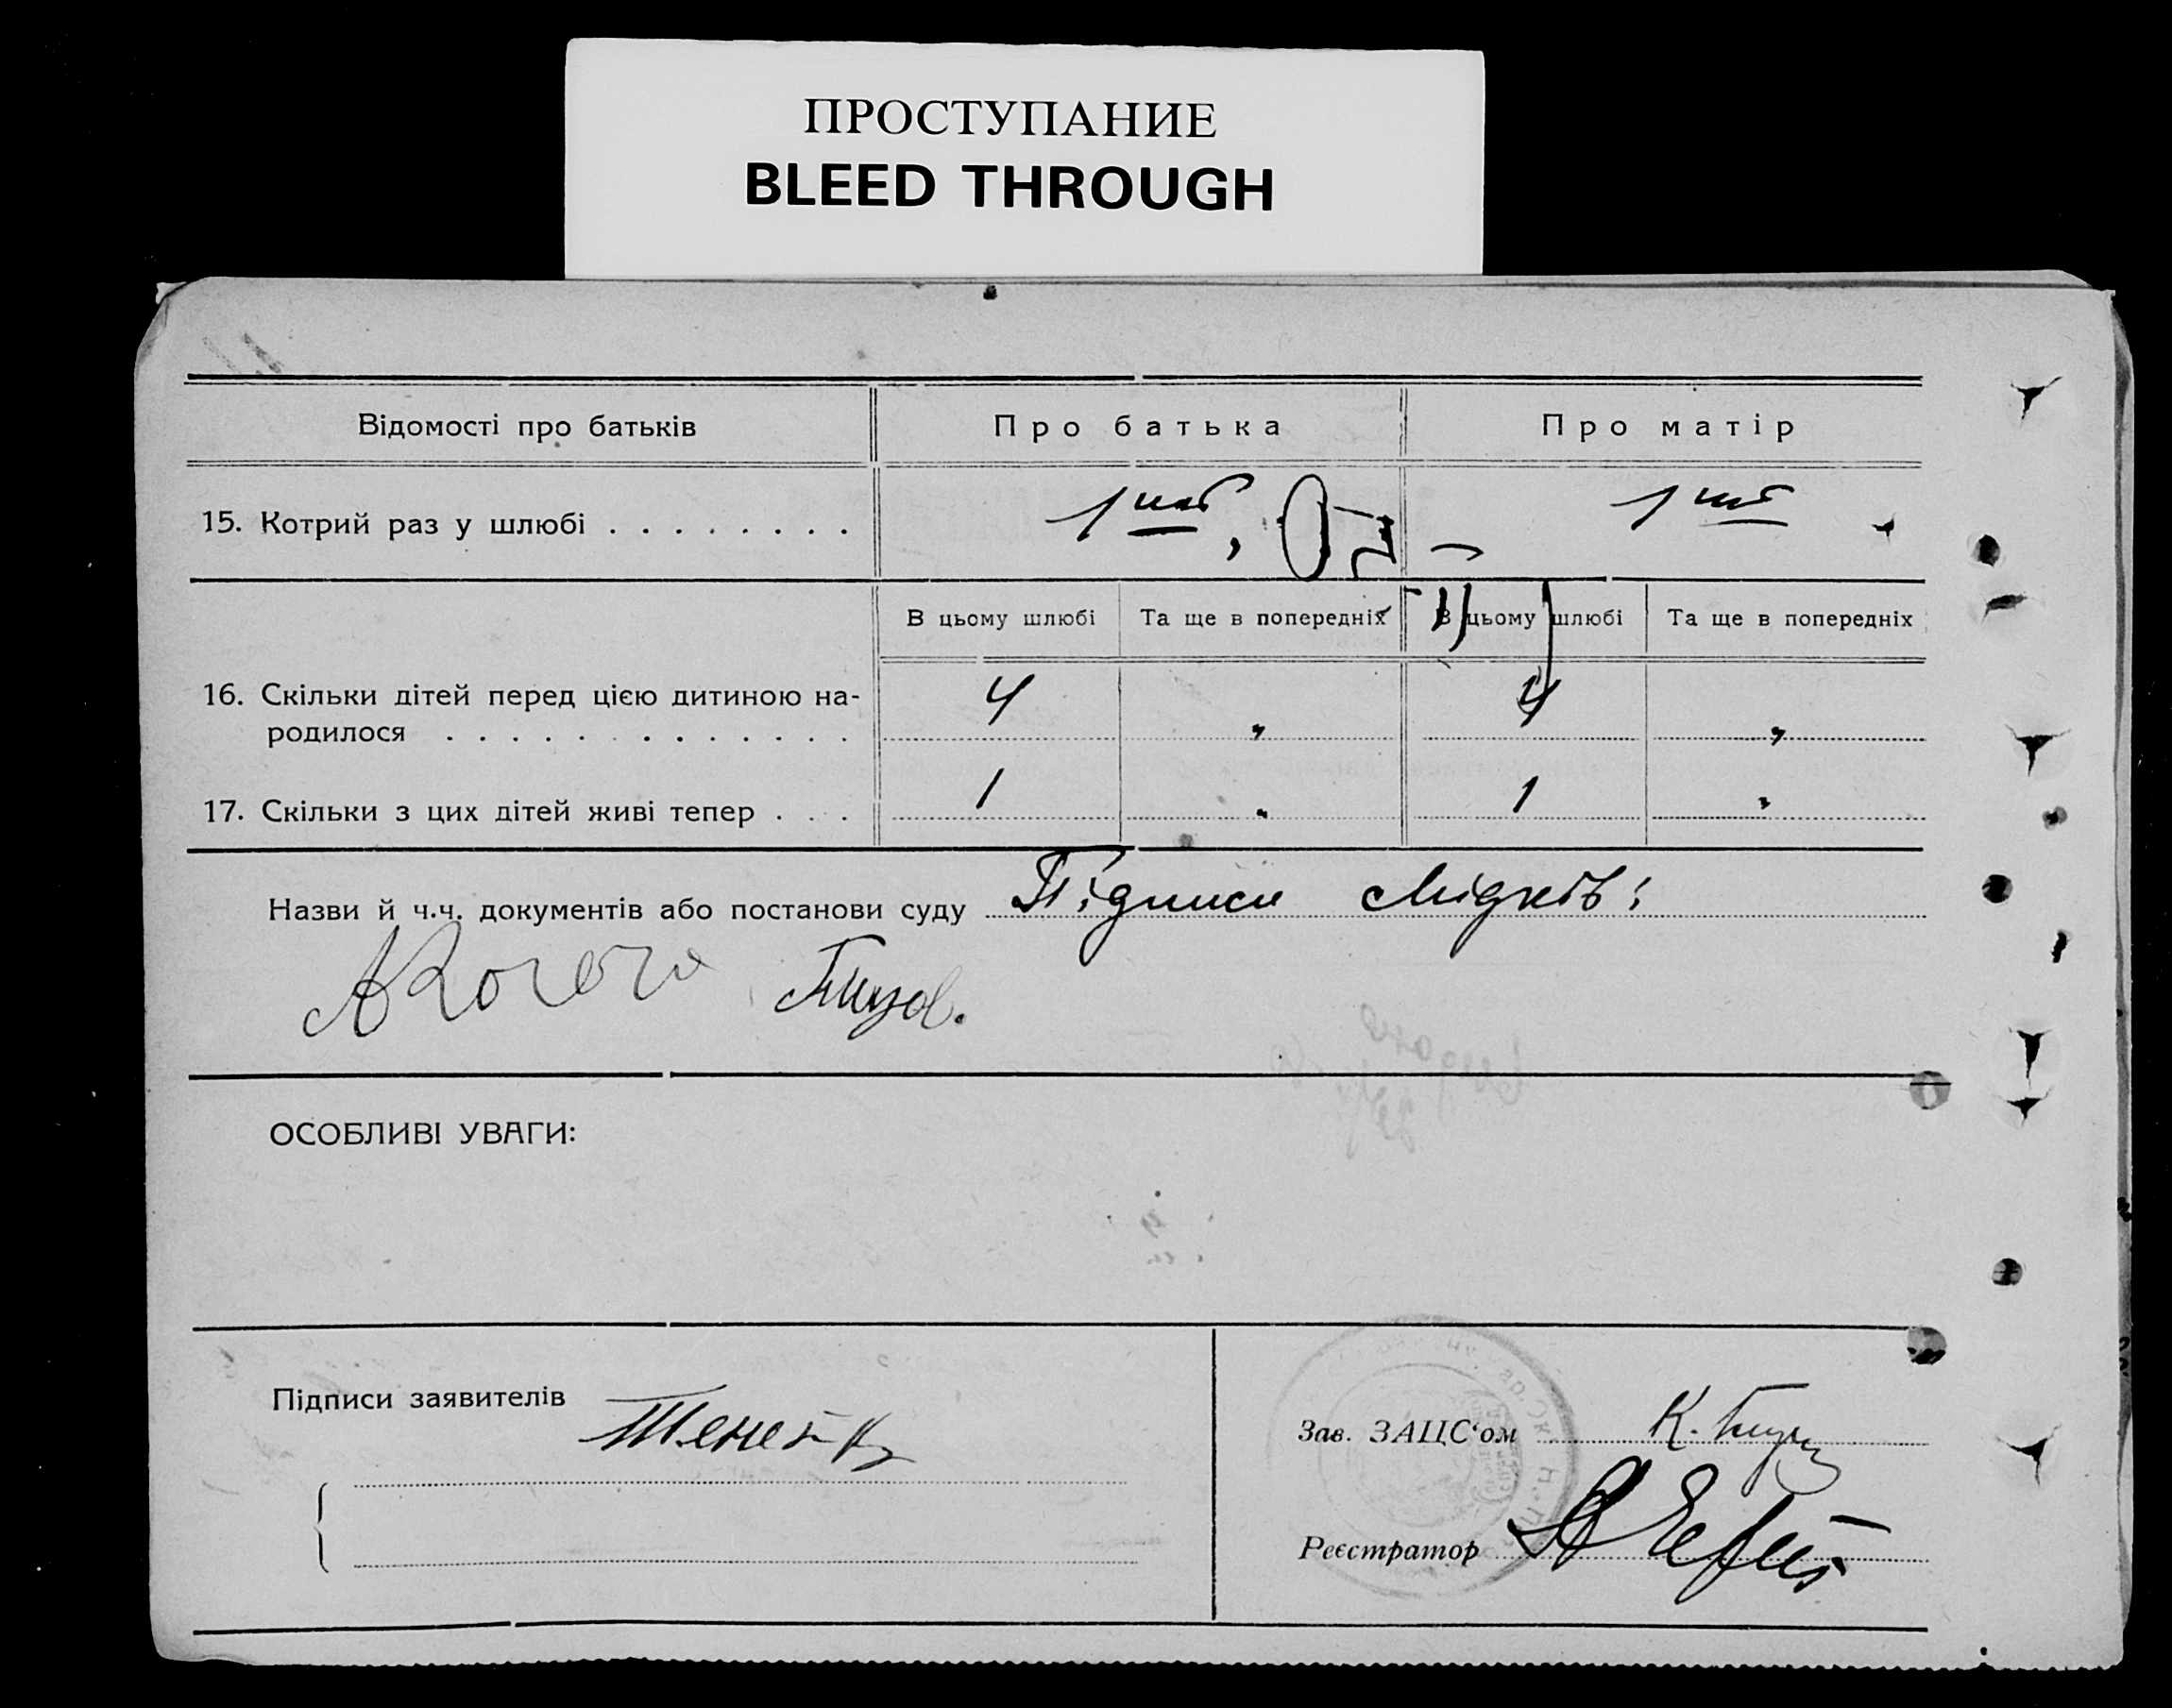 ПРОСТУПАНИЕ
BLEED THROUGH
Відомості про батьків Про батька Про матір
15. Котрий раз у шлюбі . . . . . . . . 1 1
В цьому шлюбі Та ще в попередніх В цьому шлюбі Та ще в попередніх
16. Скільки дітей перед цією дитиною на-
родилося . . . . . . . . . . . . . . 4 " 4 "
17. Скільки з цих дітей живі тепер . . . 1 " 1 "
Назви й ч.ч. документів або постанови суду Підписи свідків:
ОСОБЛИВІ УВАГИ:
Підписи заявителів
Зав. ЗАЦС'ом К.
Реєстратор